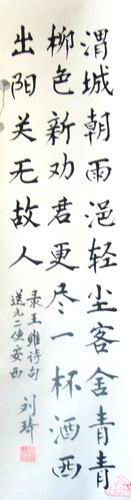 渭城朝雨浥轻尘客舍青青
柳色新劝君更尽一杯酒西
出阳关无故人
录王维诗句
送元二使安西
刘琦